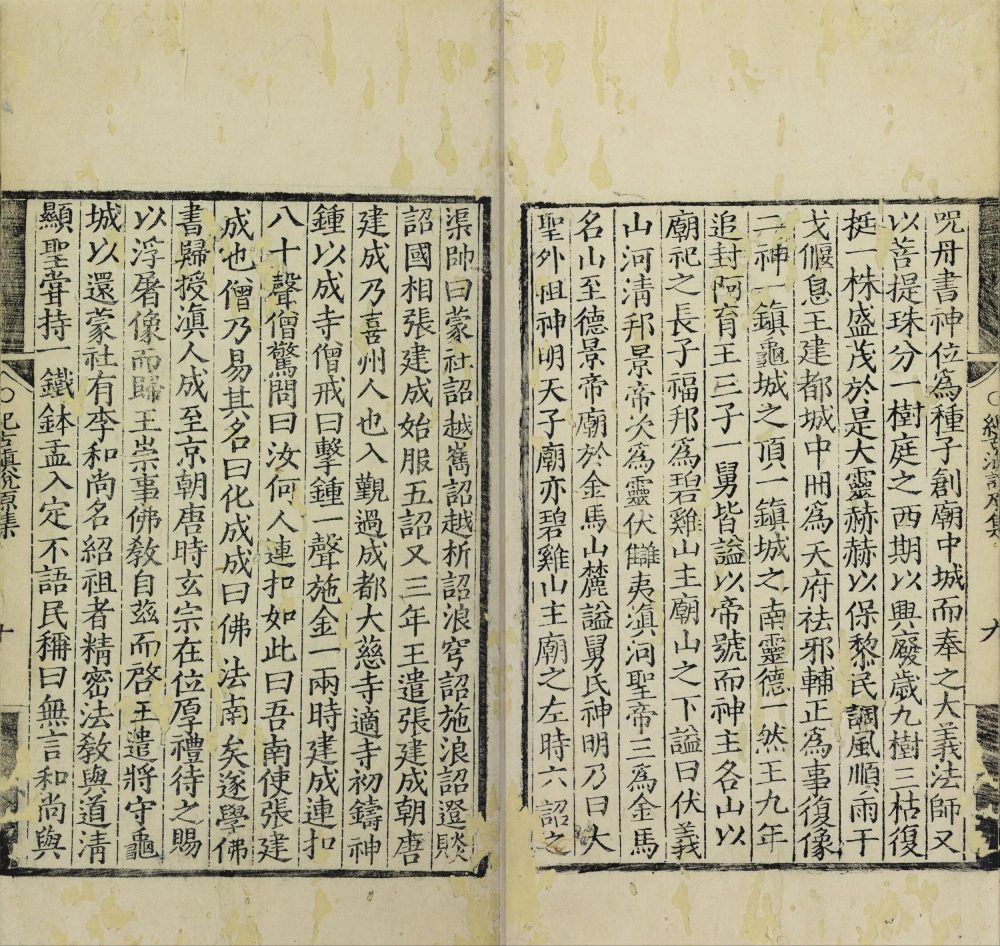 呪丹書神位為種子創廟中城而奉之大義法師又
以菩提珠分一樹庭之西期以興廢歲九樹三枯復
挺一株盛茂於是大靈赫赫以保黎民調風順雨干
戈偃息王建都城中冊為天府祛邪輔正為事復像
二神一鎮龜城之頂一鎮城之南靈德一然王九年
追封阿育王三子一舅皆謚以帝號而神主各山以
廟祀之長子福邦為碧雞山主廟山之下謚曰伏義
山河清邦景帝次為靈伏讎夷滇河聖帝三為金馬
名山至德景帝廟於金馬山麓謚舅氏神明乃曰大
聖外祖神明天子廟亦碧雞山主廟之左時六詔之
九
渠帥曰蒙社詔越嶲詔越析詔浪穹詔施浪詔邆賧
詔國相張建成始服五詔又三年王遣張建成朝唐
建成乃喜州人也入覲過成都大慈寺適寺初鑄神
鍾以成寺僧戒曰擊鍾一聲施金一兩時建成連扣
八十聲僧驚問曰汝何人連扣如此曰吾南使張建
成也僧乃易其名曰化成成曰佛法南矣遂學佛
書歸授滇人成至京朝唐時玄宗在位厚禮待之賜
以浮屠像而歸王崇事佛教自茲而啓王遣將守龜
城以還蒙社有李和尚名紹祖者精密法教與道清
顯聖當持一鐵鉢盂入定不語民稱曰無言和尚與
紀古滇說原集
十